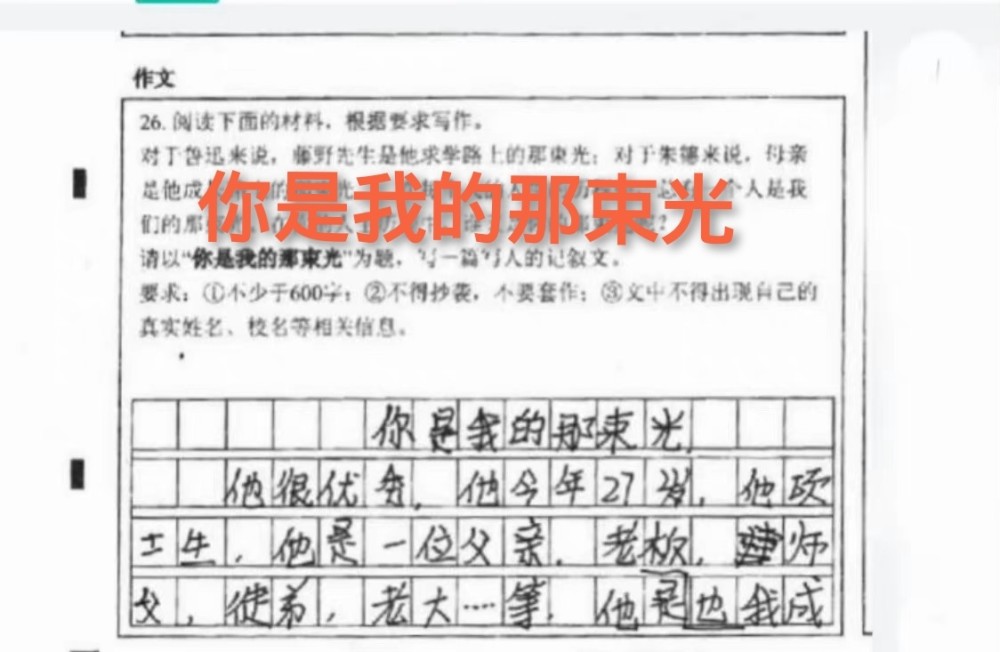 作文
26. 阅读下面的材料，根据要求写作。
对于鲁迅来说，藤野先生是他求学路上的那束光；对于朱德来说，母亲
是他成 个人是我
们的那
你是我的那束光
请以“你是我的那束光”为题，写一篇写人的记叙文。
要求：①不少于600字；②不得抄袭，不要套作；③文中不得出现自己的
真实姓名、校名等相关信息。
你是我的那束光
他很优秀，他今年27岁，他硕
士生，他是一位父亲，老板，师
父，徒弟，老大……等，他是也我成